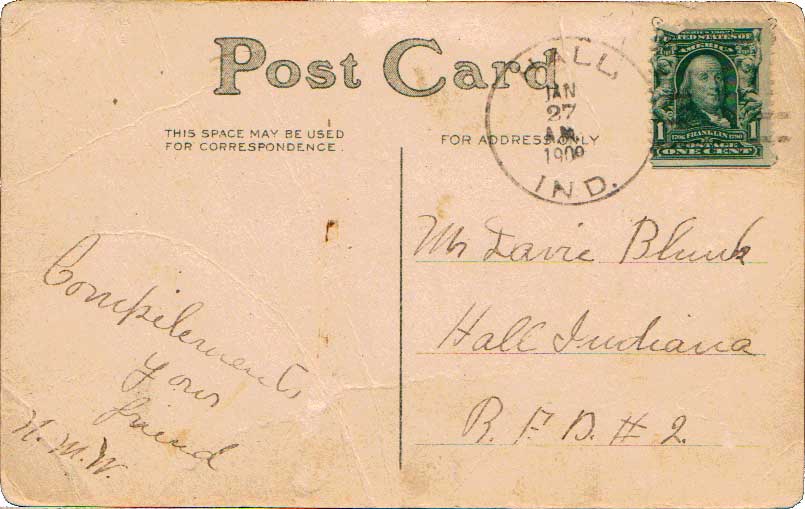 Post Card
THIS SPACE MAY BE USED
FOR CORRESPONDENCE.
FOR ADDRESS ONLY
HALL,
JAN
27
A.M.
190
IND.
SERIES 1902
UNITED STATES OF
AMERICA
1
1706 FRANKLIN 1790
1
POSTAGE
ONE CENT
Mr Davie Blunk
Hall Indiana
R. F. D. # 2.
Compilements
your
friend
H. M. W.